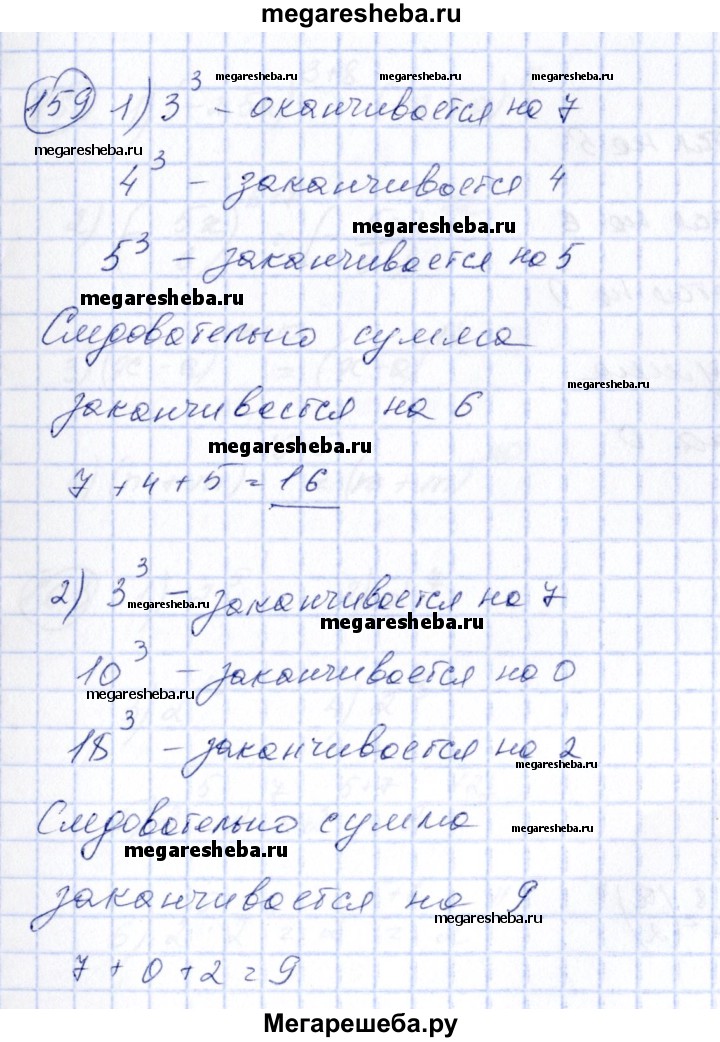 megaresheba.ru
159 1) 3³ – оканчивается на 7
megaresheba.ru megaresheba.ru megaresheba.ru
megaresheba.ru
4³ – заканчивается 4
megaresheba.ru
5³ – заканчивается на 5
megaresheba.ru
Следовательно сумма
megaresheba.ru
заканчивается на 6
megaresheba.ru
7 + 4 + 5 = 16
2) 3³ – заканчивается на 7
megaresheba.ru
megaresheba.ru
10³ – заканчивается на 0
megaresheba.ru
18³ – заканчивается на 2
megaresheba.ru
Следовательно сумма
megaresheba.ru
megaresheba.ru
заканчивается на 9
megaresheba.ru
7 + 0 + 2 = 9
Мегарешеба.ру